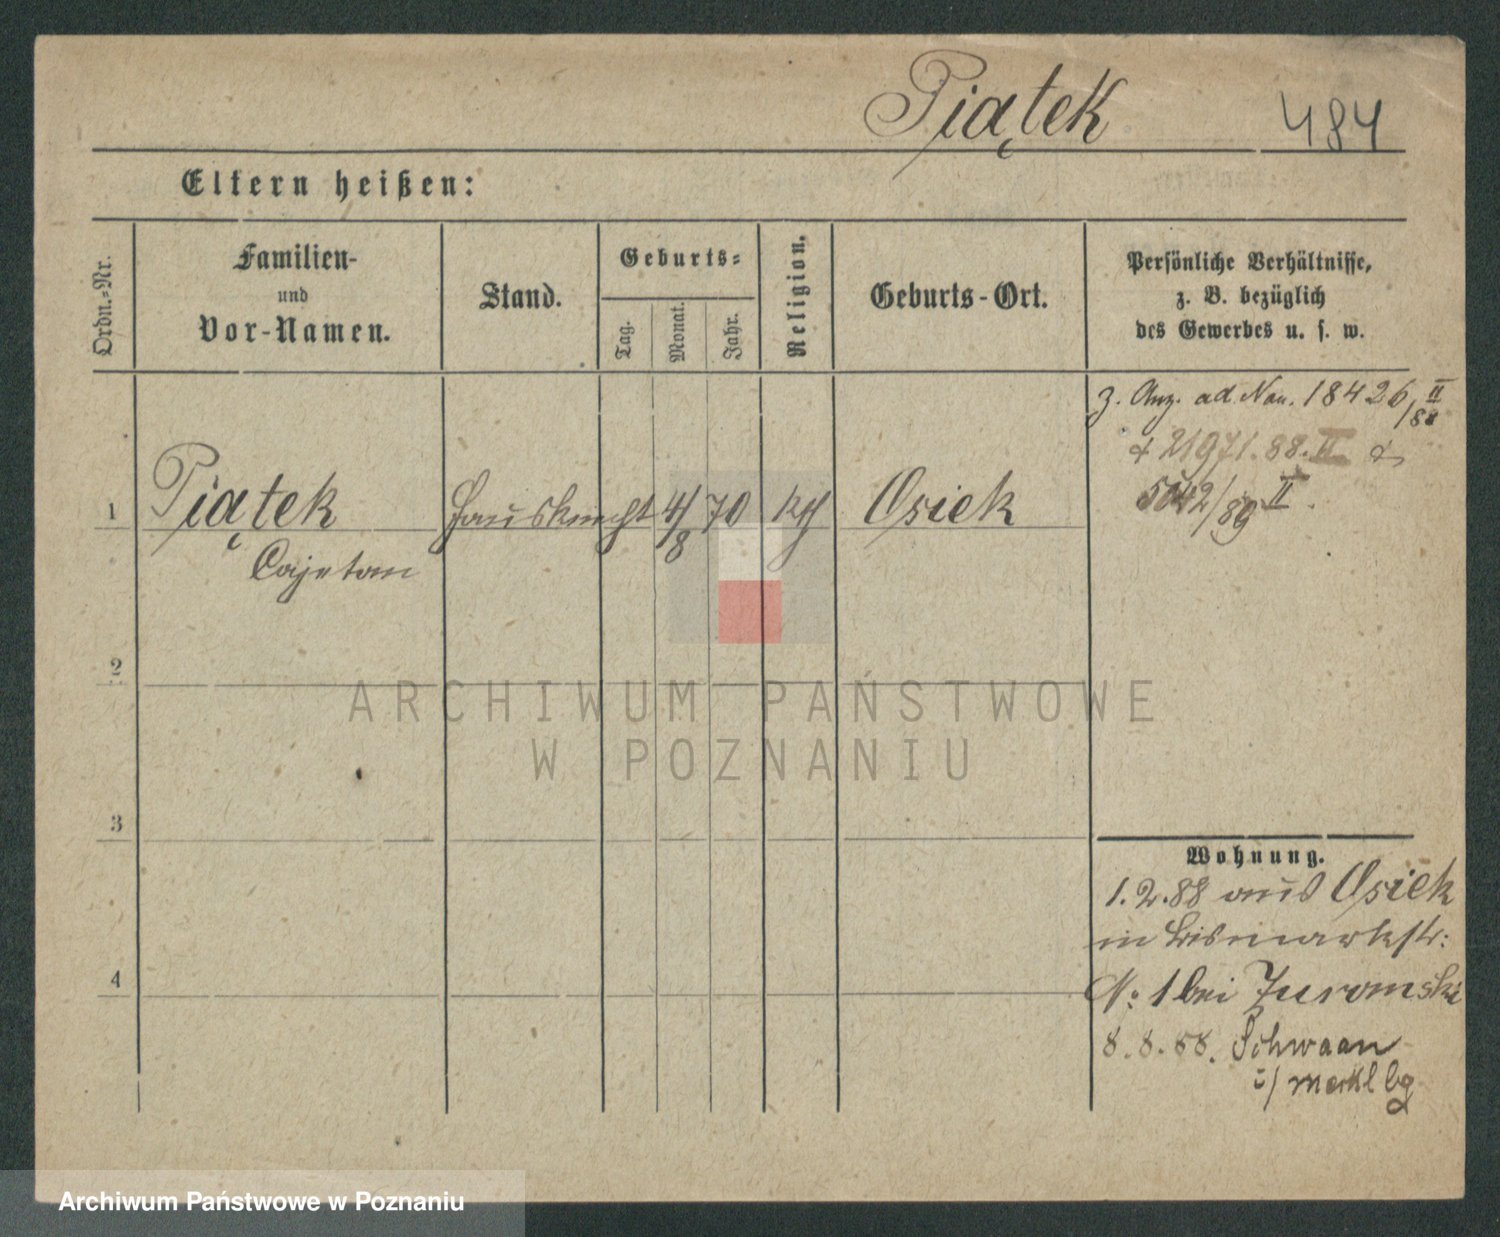 Piątek 484
Eltern heißen:
Ordn.-Nr.
Familien-
und
Vor-Namen.
Stand.
Geburts-
Tag.
Monat.
Jahr.
Religion.
Geburts-Ort.
Persönliche Verhältnisse,
z. B. bezüglich
des Gewerbes u. s. w.
z. Anz. ad Nau. 18426/88 II
& 21971.88.II &
5042/89 II.
1 Piątek Hausknecht 4/8 70 kth Osiek
Cajetan
2
3
4
Wohnung.
1.2.88 aus Osiek
in Bismarkstr:
N: 1 bei Zuromski
8.8.88. Schwaan
i/ Meckl bg
ARCHIWUM PAŃSTWOWE
W POZNANIU
Archiwum Państwowe w Poznaniu